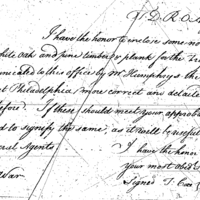 I have the honor to enclose some no
hite Oak and pine timber & plank for the Fr
unicated to this office by Mr Humphreys the
at Philadelphia, more correct and details
efore. If these should meet your approba
ed to signify the same, as it will be useful
al Agents
I have the honor
your most obed
War
Signed T.